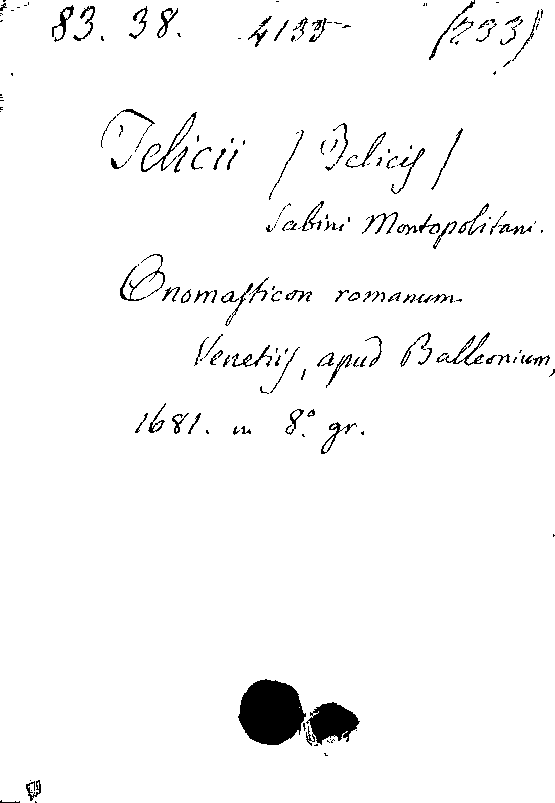 83. 38. 4135 (233)
Felicii / Felicis /
Sabini Montopolitani.
Onomasticon romanum
Venetiis, apud Balleonium,
1681. in 8.° gr.